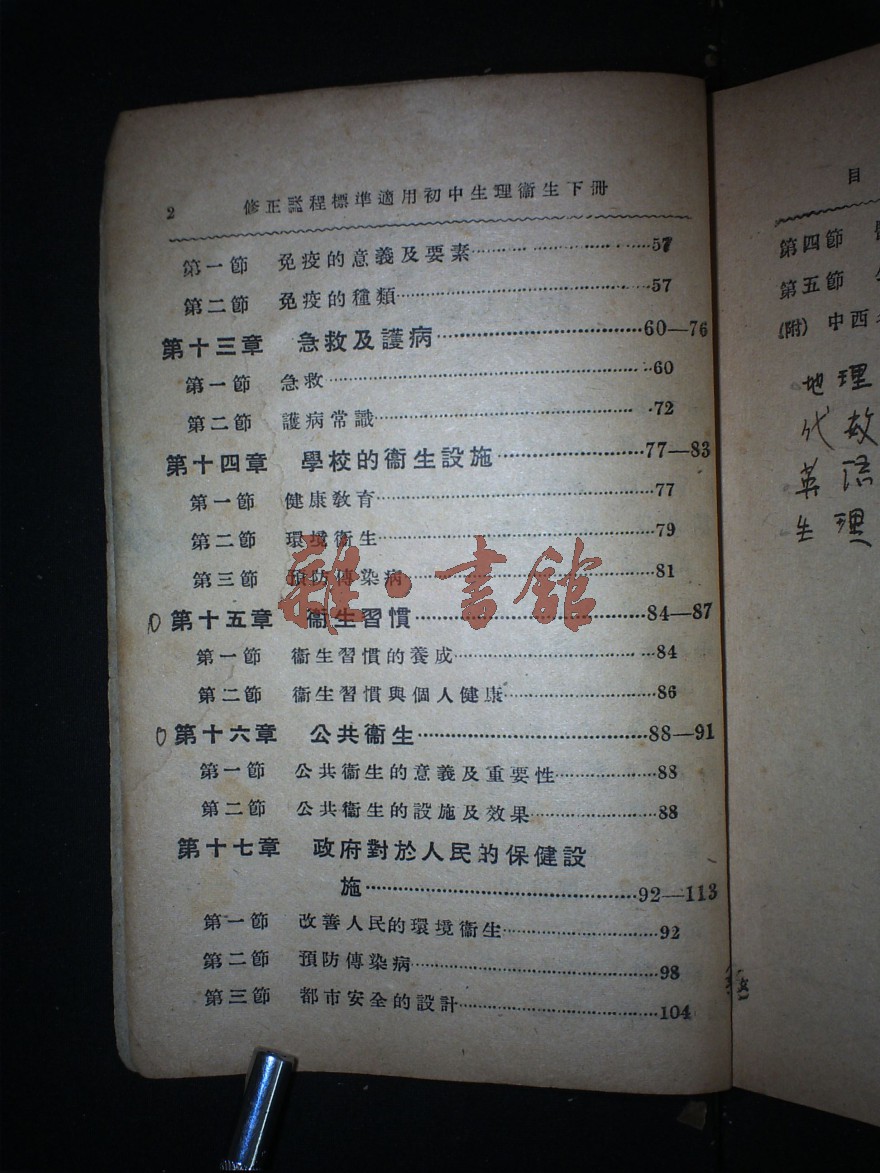 2 修正課程標準適用初中生理衞生下冊
第一節 免疫的意義及要素……57
第二節 免疫的種類……57
第十三章 急救及護病……60—76
第一節 急救……60
第二節 護病常識……72
第十四章 學校的衞生設施……77—83
第一節 健康敎育……77
第二節 環境衞生……79
第三節 預防傳染病……81
第十五章 衞生習慣……84—87
第一節 衞生習慣的養成……84
第二節 衞生習慣與個人健康……86
第十六章 公共衞生……88—91
第一節 公共衞生的意義及重要性……88
第二節 公共衞生的設施及效果……88
第十七章 政府對於人民的保健設
施……92—113
第一節 改善人民的環境衞生……92
第二節 預防傳染病……98
第三節 都市安全的設計……104
雜·書館
目
第四節
第五節
(附) 中西
地理
代数
英语
生理